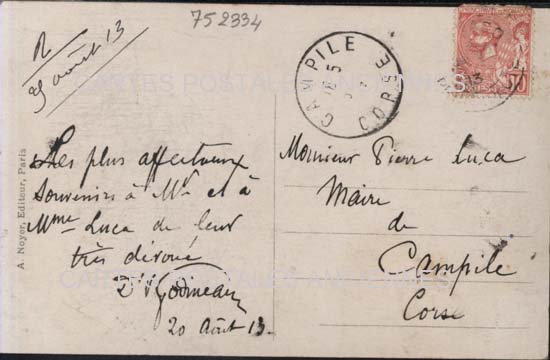 752334
R
25 août 13
CAMPILE
CORSE
CARTES POSTALES ANCIENNES
A. Noyer, Editeur, Paris
Les plus affectueux
souvenirs à Mr et à
Mme Luca de leur
très dévoué
20 Août 13.
Monsieur Pierre Luca
Maire
de
Campile
Corse